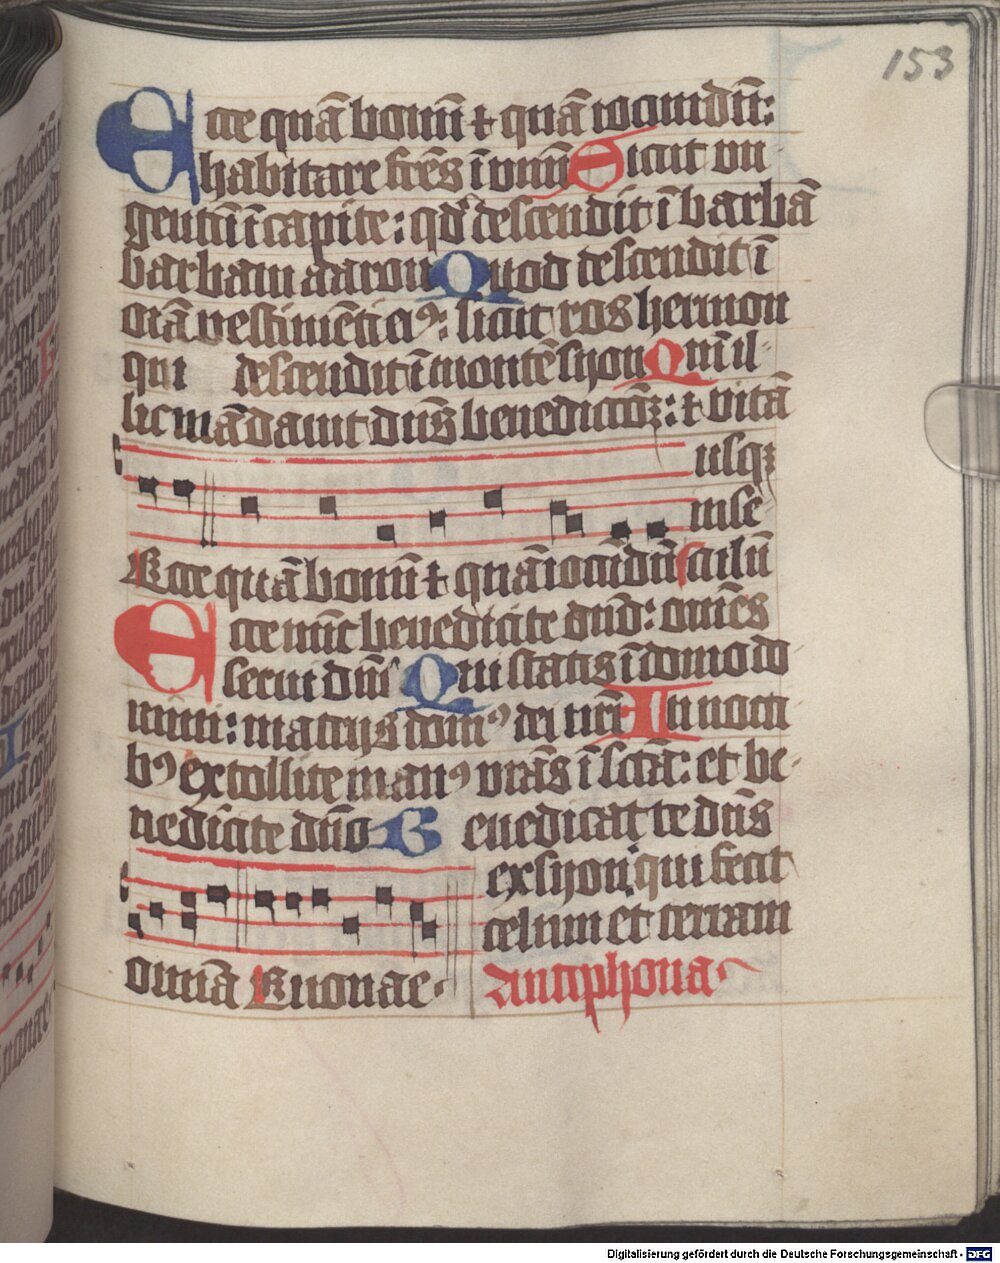 153
Ecce quā bonū ⁊ quā iocundū:
habitare frēs ī vnū Sicut vn
gentū ī capite: qd̄ descendit ī barbā
barbam aaron Quod descendit ī
orā vestimēti eiꝰ: sicut ros hermon
qui descendit ī montē syon Qm̄ il-
lic mādauit dn̄s benedictōꝫ: ⁊ vitā
usqꝫ
in se
Ecce quā bonū ⁊ quā iocūdū culū
Ecce nūc benedicite dn̄o: omēs
serui dn̄i Qui statis ī domo do
mini: in atrijs domꝰ dei nr̄i In nocti
bꝰ extollite manꝰ vrās ī sctā: et be-
nedicite dn̄o Benedicat te dn̄s
ex syon: qui fecit
celum et terram
omnia Euouae
Antiphona
Digitalisierung gefördert durch die Deutsche Forschungsgemeinschaft - DFG